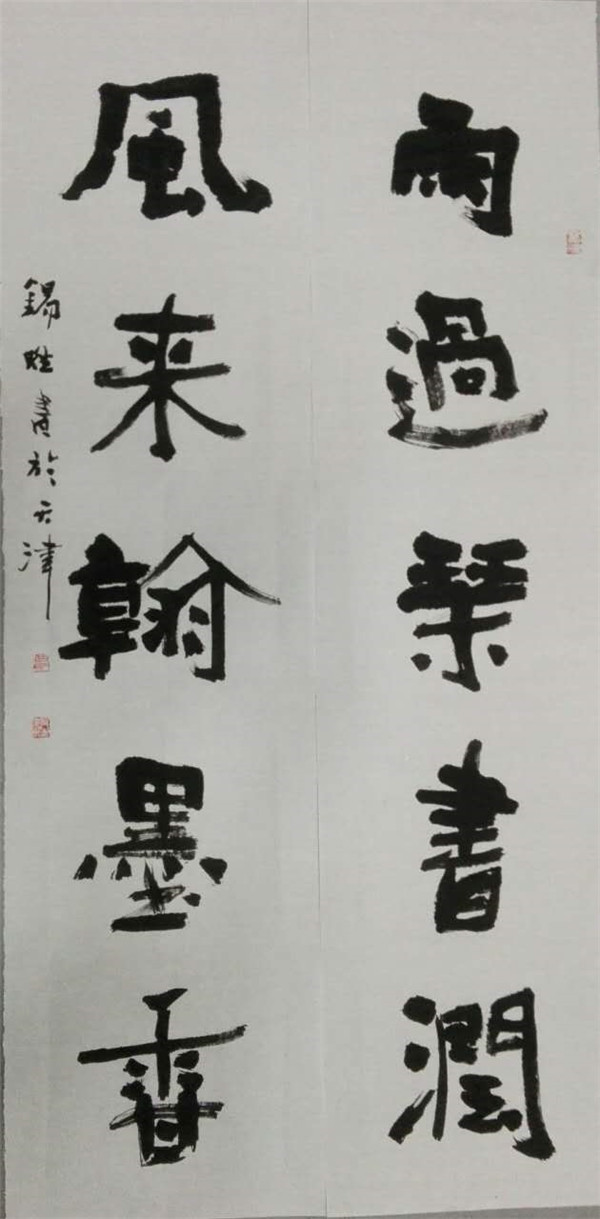 雨過琹書潤
風来翰墨香
錫 書於天津